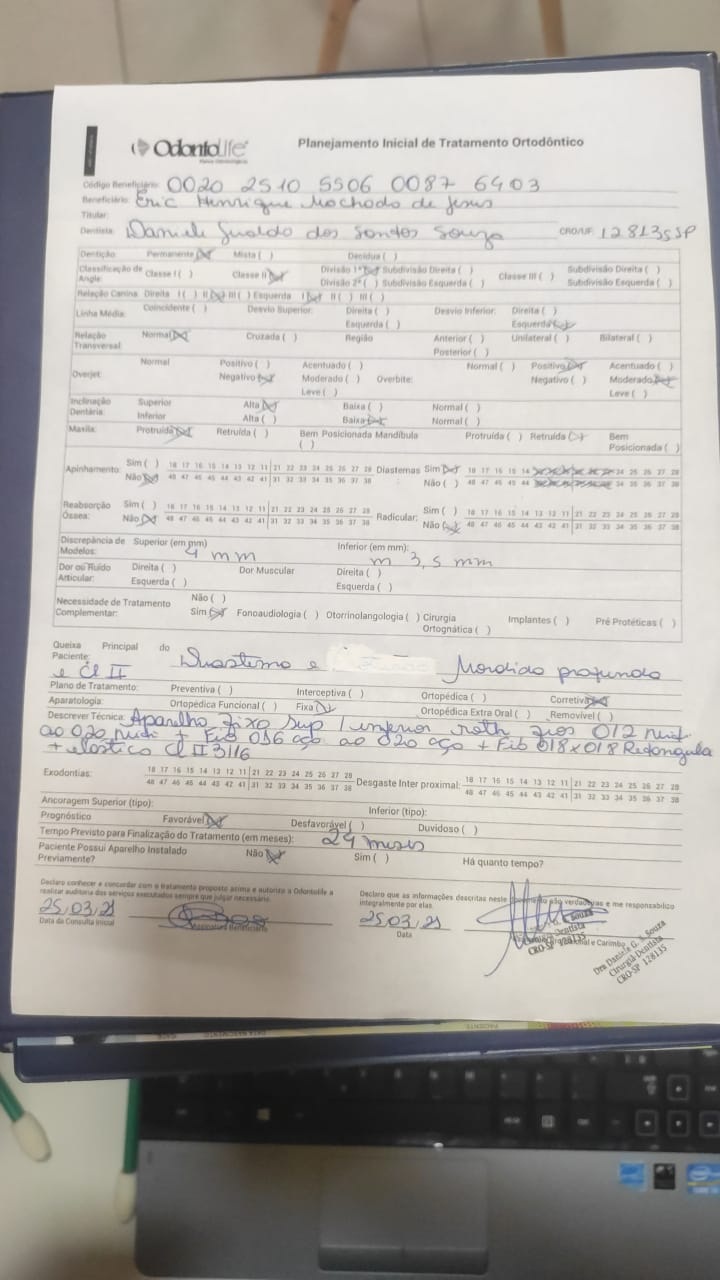 OdontoLife
Planejamento Inicial de Tratamento Ortodôntico
Código Beneficiário: 0020 2510 5506 0087 6403
Beneficiário: Eric Henrique Machado de Jesus
Titular:
Dentista: Daniele Gualdo dos Santos Souza CRO/UF: 128135SP
Dentição: Permanente (X) Mista ( ) Decídua ( )
Classificação de Angle: Classe I ( ) Classe II (X) Divisão 1ª (X) Subdivisão Direita ( ) Classe III ( ) Subdivisão Direita ( )
Divisão 2ª ( ) Subdivisão Esquerda ( ) Subdivisão Esquerda ( )
Relação Canina Direita I ( ) II (X) III ( ) Esquerda I (X) II ( ) III ( )
Linha Média: Coincidente ( ) Desvio Superior: Direita ( ) Desvio Inferior: Direita ( )
Esquerda ( ) Esquerda (X)
Relação Transversal: Normal (X) Cruzada ( ) Região Anterior ( ) Unilateral ( ) Bilateral ( )
Posterior ( )
Overjet: Normal Positivo ( ) Acentuado ( ) Normal ( ) Positivo (X) Acentuado ( )
Negativo (X) Moderado ( ) Overbite: Negativo ( ) Moderado (X)
Leve ( ) Leve ( )
Inclinação Dentária: Superior Alta (X) Baixa ( ) Normal ( )
Inferior Alta ( ) Baixa (X) Normal ( )
Maxila: Protruída (X) Retruída ( ) Bem Posicionada ( ) Mandíbula Protruída ( ) Retruída (X) Bem Posicionada ( )
Apinhamento: Sim ( ) 18 17 16 15 14 13 12 11 21 22 23 24 25 26 27 28 Diastemas Sim (X) 18 17 16 15 14 24 25 26 27 28
Não (X) 48 47 46 45 44 43 42 41 31 32 33 34 35 36 37 38 Não ( ) 48 47 46 45 44 34 35 36 37 38
Reabsorção Óssea: Sim ( ) 18 17 16 15 14 13 12 11 21 22 23 24 25 26 27 28 Radicular: Sim ( ) 18 17 16 15 14 13 12 11 21 22 23 24 25 26 27 28
Não (X) 48 47 46 45 44 43 42 41 31 32 33 34 35 36 37 38 Não (X) 48 47 46 45 44 43 42 41 31 32 33 34 35 36 37 38
Discrepância de Modelos: Superior (em mm) 4 mm Inferior (em mm): m 3,5 mm
Dor ou Ruído Articular: Direita ( ) Dor Muscular Direita ( )
Esquerda ( ) Esquerda ( )
Necessidade de Tratamento Complementar: Não ( )
Sim (X) Fonoaudiologia ( ) Otorrinolangologia ( ) Cirurgia Ortognática ( ) Implantes ( ) Pré Protéticas ( )
Queixa Principal do Paciente: Diastema e Mordida profunda
e Cl II
Plano de Tratamento: Preventiva ( ) Interceptiva ( ) Ortopédica ( ) Corretiva (X)
Aparatologia: Ortopédica Funcional ( ) Fixa (X) Ortopédica Extra Oral ( ) Removível ( )
Descrever Técnica: Aparelho fixo Sup / inferior roth fios 012 niti
ao 020 niti + Fio 016 aço ao 020 aço + Fio 018x018 Retangula
+ elastico Cl II 3/16
Exodontias: 18 17 16 15 14 13 12 11 21 22 23 24 25 26 27 28 Desgaste Inter proximal: 18 17 16 15 14 13 12 11 21 22 23 24 25 26 27 28
48 47 46 45 44 43 42 41 31 32 33 34 35 36 37 38 48 47 46 45 44 43 42 41 31 32 33 34 35 36 37 38
Ancoragem Superior (tipo): Inferior (tipo):
Prognóstico Favorável (X) Desfavorável ( ) Duvidoso ( )
Tempo Previsto para Finalização do Tratamento (em meses): 24 meses
Paciente Possui Aparelho Instalado Previamente? Não (X) Sim ( ) Há quanto tempo?
Declaro conhecer e concordar com o tratamento proposto acima e autorizo a Odontolife a realizar auditoria dos serviços executados sempre que julgar necessário.
Declaro que as informações descritas neste são verdadeiras e me responsabilizo integralmente por elas.
25,03,21
Data da Consulta Inicial
Assinatura Beneficiário
25,03,21
Data
e Carimbo
Dra Daniele G. S. Souza
Cirurgiã Dentista
CRO-SP 128135